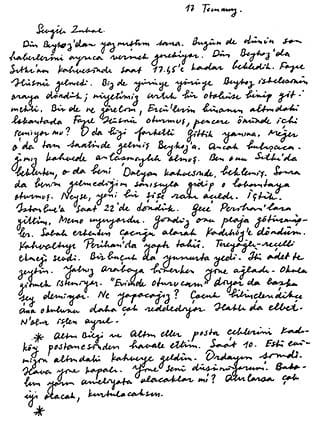 17 Temmuz.
Sevgili Zuhal
Dün Beykoz'dan yazmıştım sana. Bugün de dünün son
haberlerini ayrıca vermek gerekiyor. Dün Beykoz'da
Sıtkı'nın kahvesinde saat 17.45'e kadar bekledik. Fazıl
Hüsnü gelmedi. Biz de yürüye yürüye Beykoz iskelesinin
oraya döndük; niyetimiz artık bir otobüse binip git-
mekti. Bir de ne görelim, Ercü'lerin binanın altındaki
lokantada Fazıl Hüsnü oturmuş, pencere önünde içki
içmiyor mu? O da bizi farketti. Gittik yanına. Meğer
o da tam saatinde gelmiş Beykoz'a. Ancak buluşaca-
ğımız kahvede anlaşmazlık olmuş. Ben onu Sıtkı'da
beklerken, o da beni Dalyan kahvesinde beklemiş. Sonra
da benim gelmediğim sonucuyla gidip o lokantaya
oturmuş. Neyse, yeni bir şişe rakı açıldı. İçtik.
İstanbul'a saat 22'de döndük. Gece Perihan'lara
gittim. Memo uyuyordu. Gündüz onu plaja götürmüş-
ler. Sabah erkenden çocuğu alarak Kadıköy'e döndüm.
Kahvaltıyı Perihan'da yaptı tabii. Tereyağlı-reçelli
ekmeği sevdi. Bir buçuk da yumurta yedi. İki adet te
zeytin. Yalnız arabaya binerken yine ağladı. Okula
gitmek istemiyor. "Evinde oturucam" diyor da başka
şey demiyor. Ne yapacağız? Çocuk bilinçlendikçe
ana okulunu daha çok reddediyor. Haklı da elbet.
N'olur işten ayrıl.
* Altın Bilgi ve Altın eller posta çeklerini Kadı-
köy postanesinden havale ettim. Saat 10. Eski evi-
mizin altındaki kahveye geldim. Ordayım şimdi.
Hava yine kapalı. Yine seni düşünüyorum. Baba-
lım yarın ameliyata alacaklar mı? Alırlarsa çok
iyi olacak, kurtulacaksın.
*